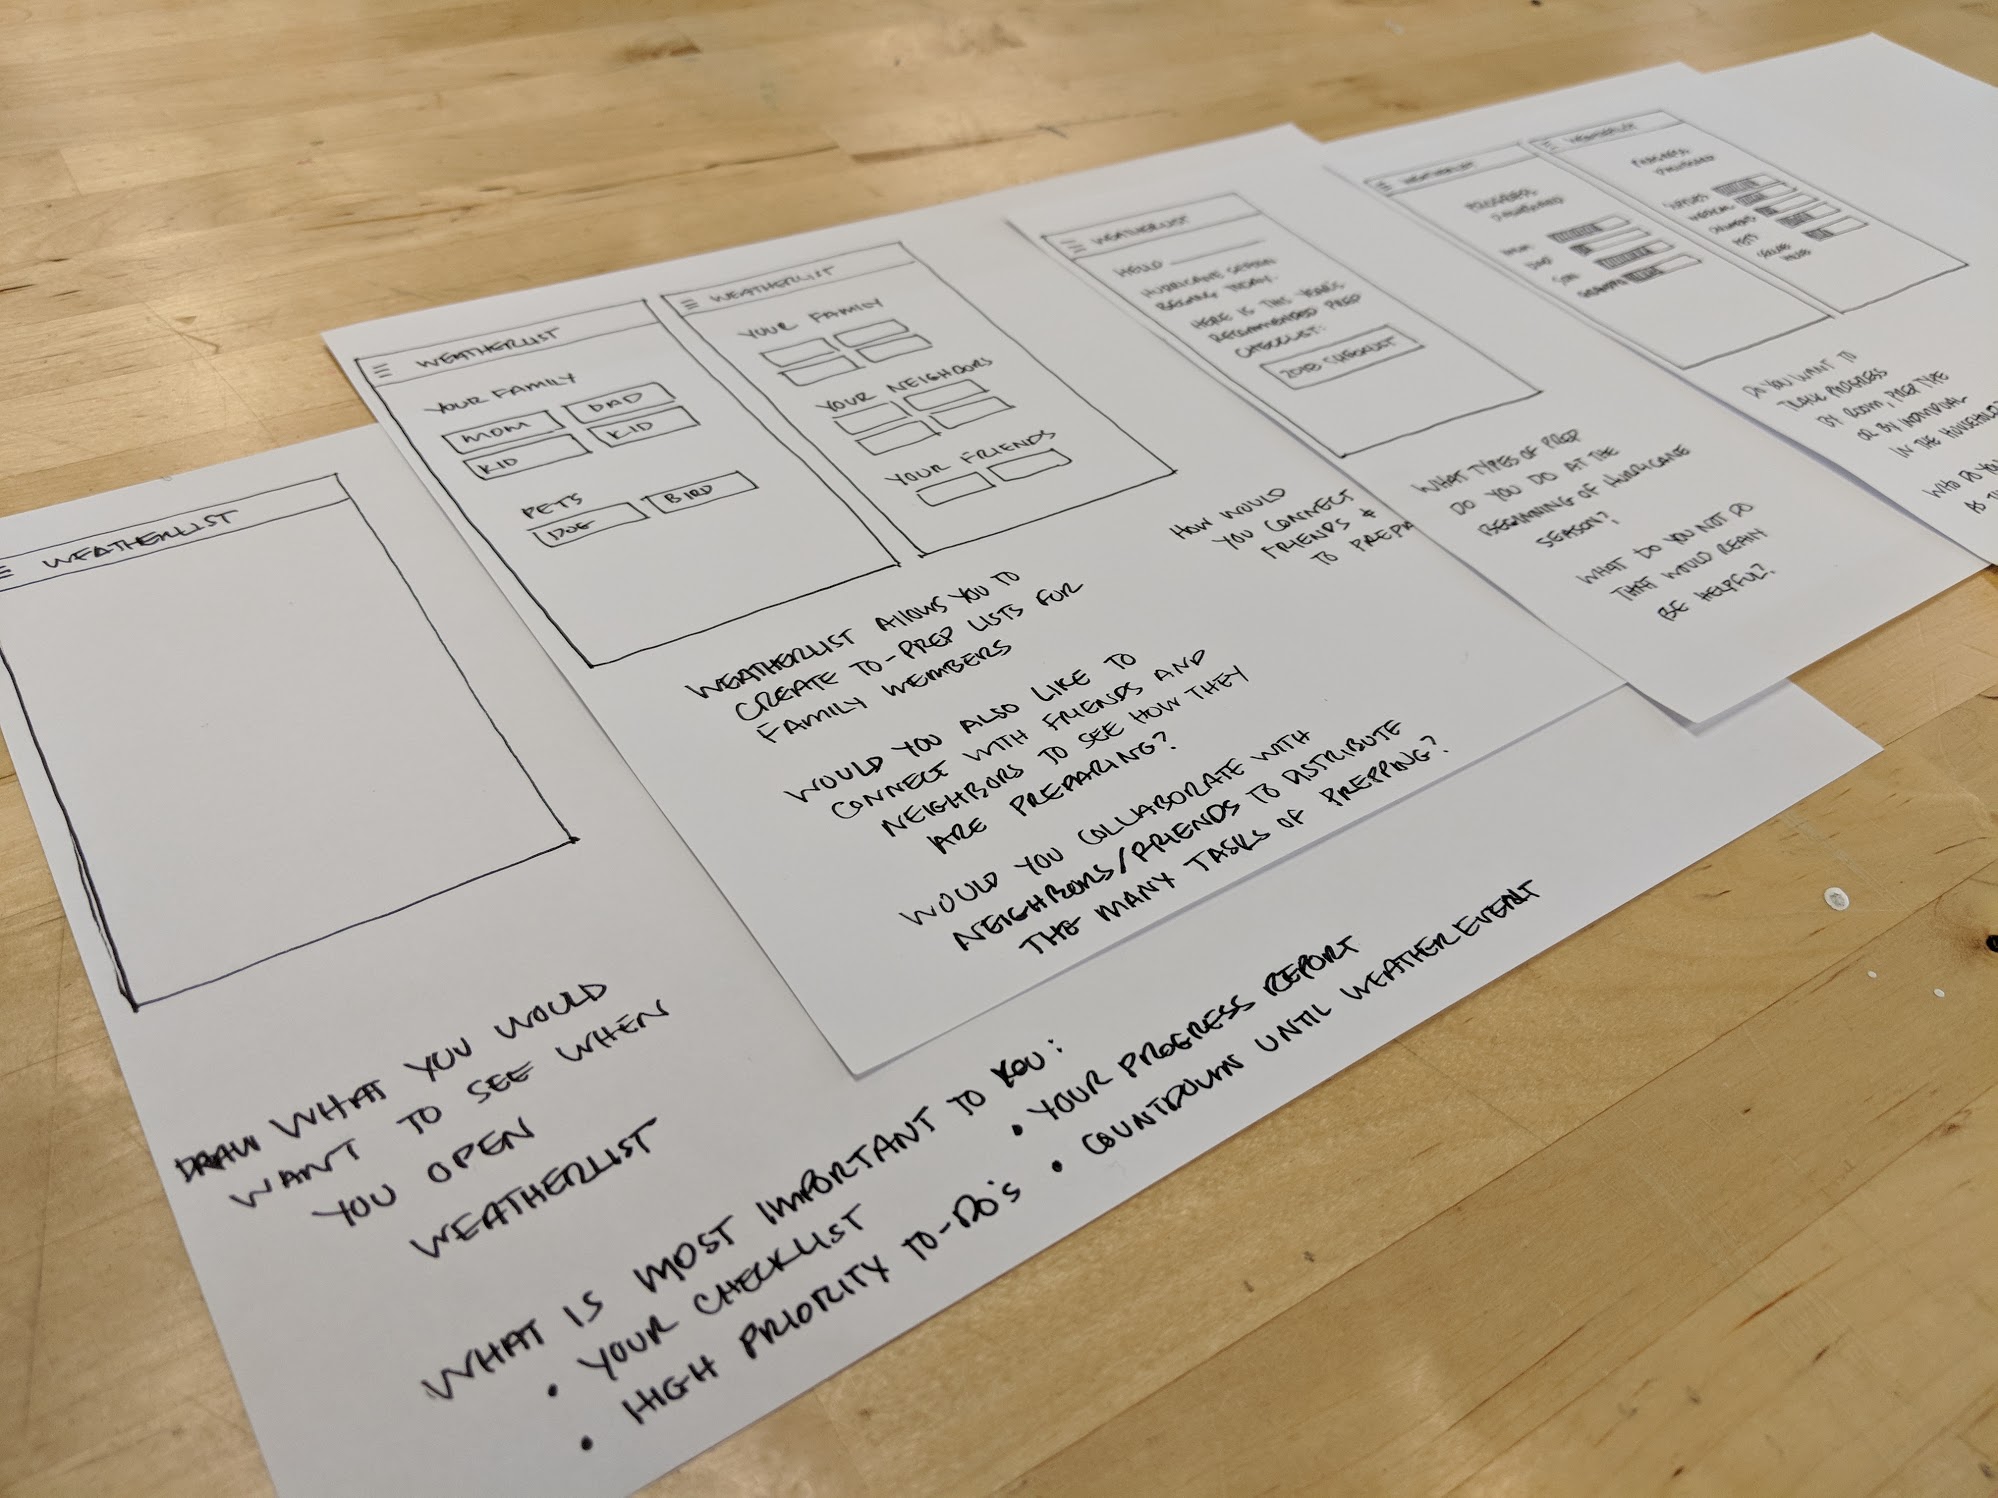 WEATHERLIST
DRAW WHAT YOU WOULD
WANT TO SEE WHEN
YOU OPEN
WEATHERLIST
WHAT IS MOST IMPORTANT TO YOU:
• YOUR CHECKLIST
• HIGH PRIORITY TO-DO'S
• YOUR PROGRESS REPORT
• COUNTDOWN UNTIL WEATHER EVENT
WEATHERLIST
YOUR FAMILY
MOM DAD
KID KID
PETS
DOG BIRD
WEATHERLIST
YOUR FAMILY
YOUR NEIGHBORS
YOUR FRIENDS
WEATHERLIST ALLOWS YOU TO
CREATE TO-PREP LISTS FOR
FAMILY MEMBERS
WOULD YOU ALSO LIKE TO
CONNECT WITH FRIENDS AND
NEIGHBORS TO SEE HOW THEY
ARE PREPARING?
WOULD YOU COLLABORATE WITH
NEIGHBORS/FRIENDS TO DISTRIBUTE
THE MANY TASKS OF PREPPING?
HOW WOULD
YOU CONNECT
FRIENDS &
TO PREPA
WEATHERLIST
HELLO
HURRICANE SEASON
BEGINS TODAY.
HERE IS THIS YEAR'S
RECOMMENDED PREP
CHECKLIST:
2018 CHECKLIST
WHAT TYPES OF PREP
DO YOU DO AT THE
BEGINNING OF HURRICANE
SEASON?
WHAT DO YOU NOT DO
THAT WOULD REALLY
BE HELPFUL?
WEATHERLIST
PROGRESS
DASHBOARD
MOM
DAD
SON
WEATHERLIST
PROGRESS
DASHBOARD
SUPPLIES
MEDICAL
DOCUMENTS
PETS
DO YOU WANT TO
TRACK PROGRESS
BY ROOM, PREP TYPE
OR BY INDIVIDUAL
IN THE HOUSEHOLD?
WHO DO YO
AS T